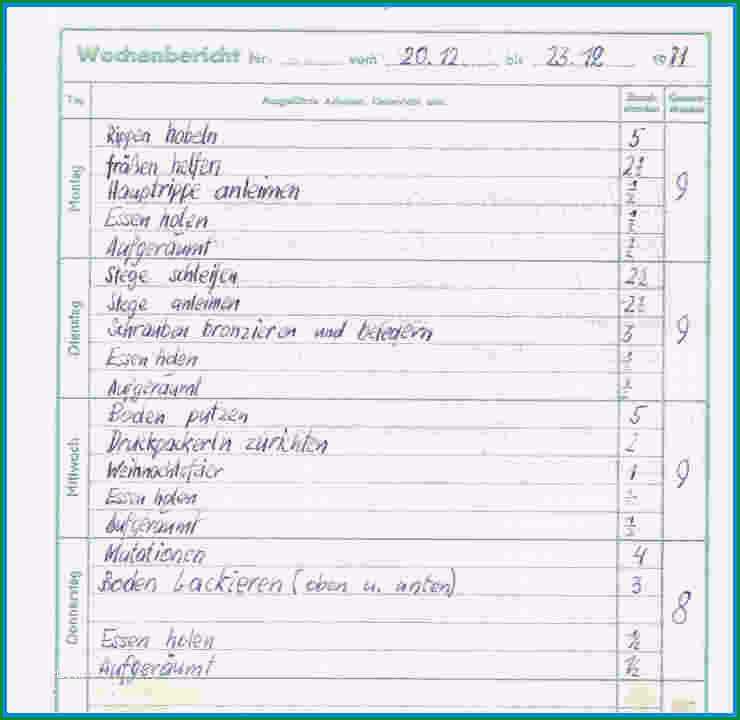 Wochenbericht Nr. vom 20.12. bis 23.12 19 71
Tag Ausgeführte Arbeiten, Unterricht usw. Einzel-stunden Gesamt-stunden
Montag
Rippen hobeln 5
fräßen helfen 2½
Hauptrippe anleimen ½
Essen holen ½
Aufgeräumt ½
9
Dienstag
Stege schleifen 2½
Stege anleimen 2½
Schrauben bronzieren und beledern 3
Essen holen ½
Aufgeräumt ½
9
Mittwoch
Boden putzen 5
zurichten 2
Weihnachtsfeier 1
Essen holen ½
Aufgeräumt ½
9
Donnerstag
Mutationen 4
Boden Lackieren (oben u. unten) 3
Essen holen ½
Aufgeräumt ½
8